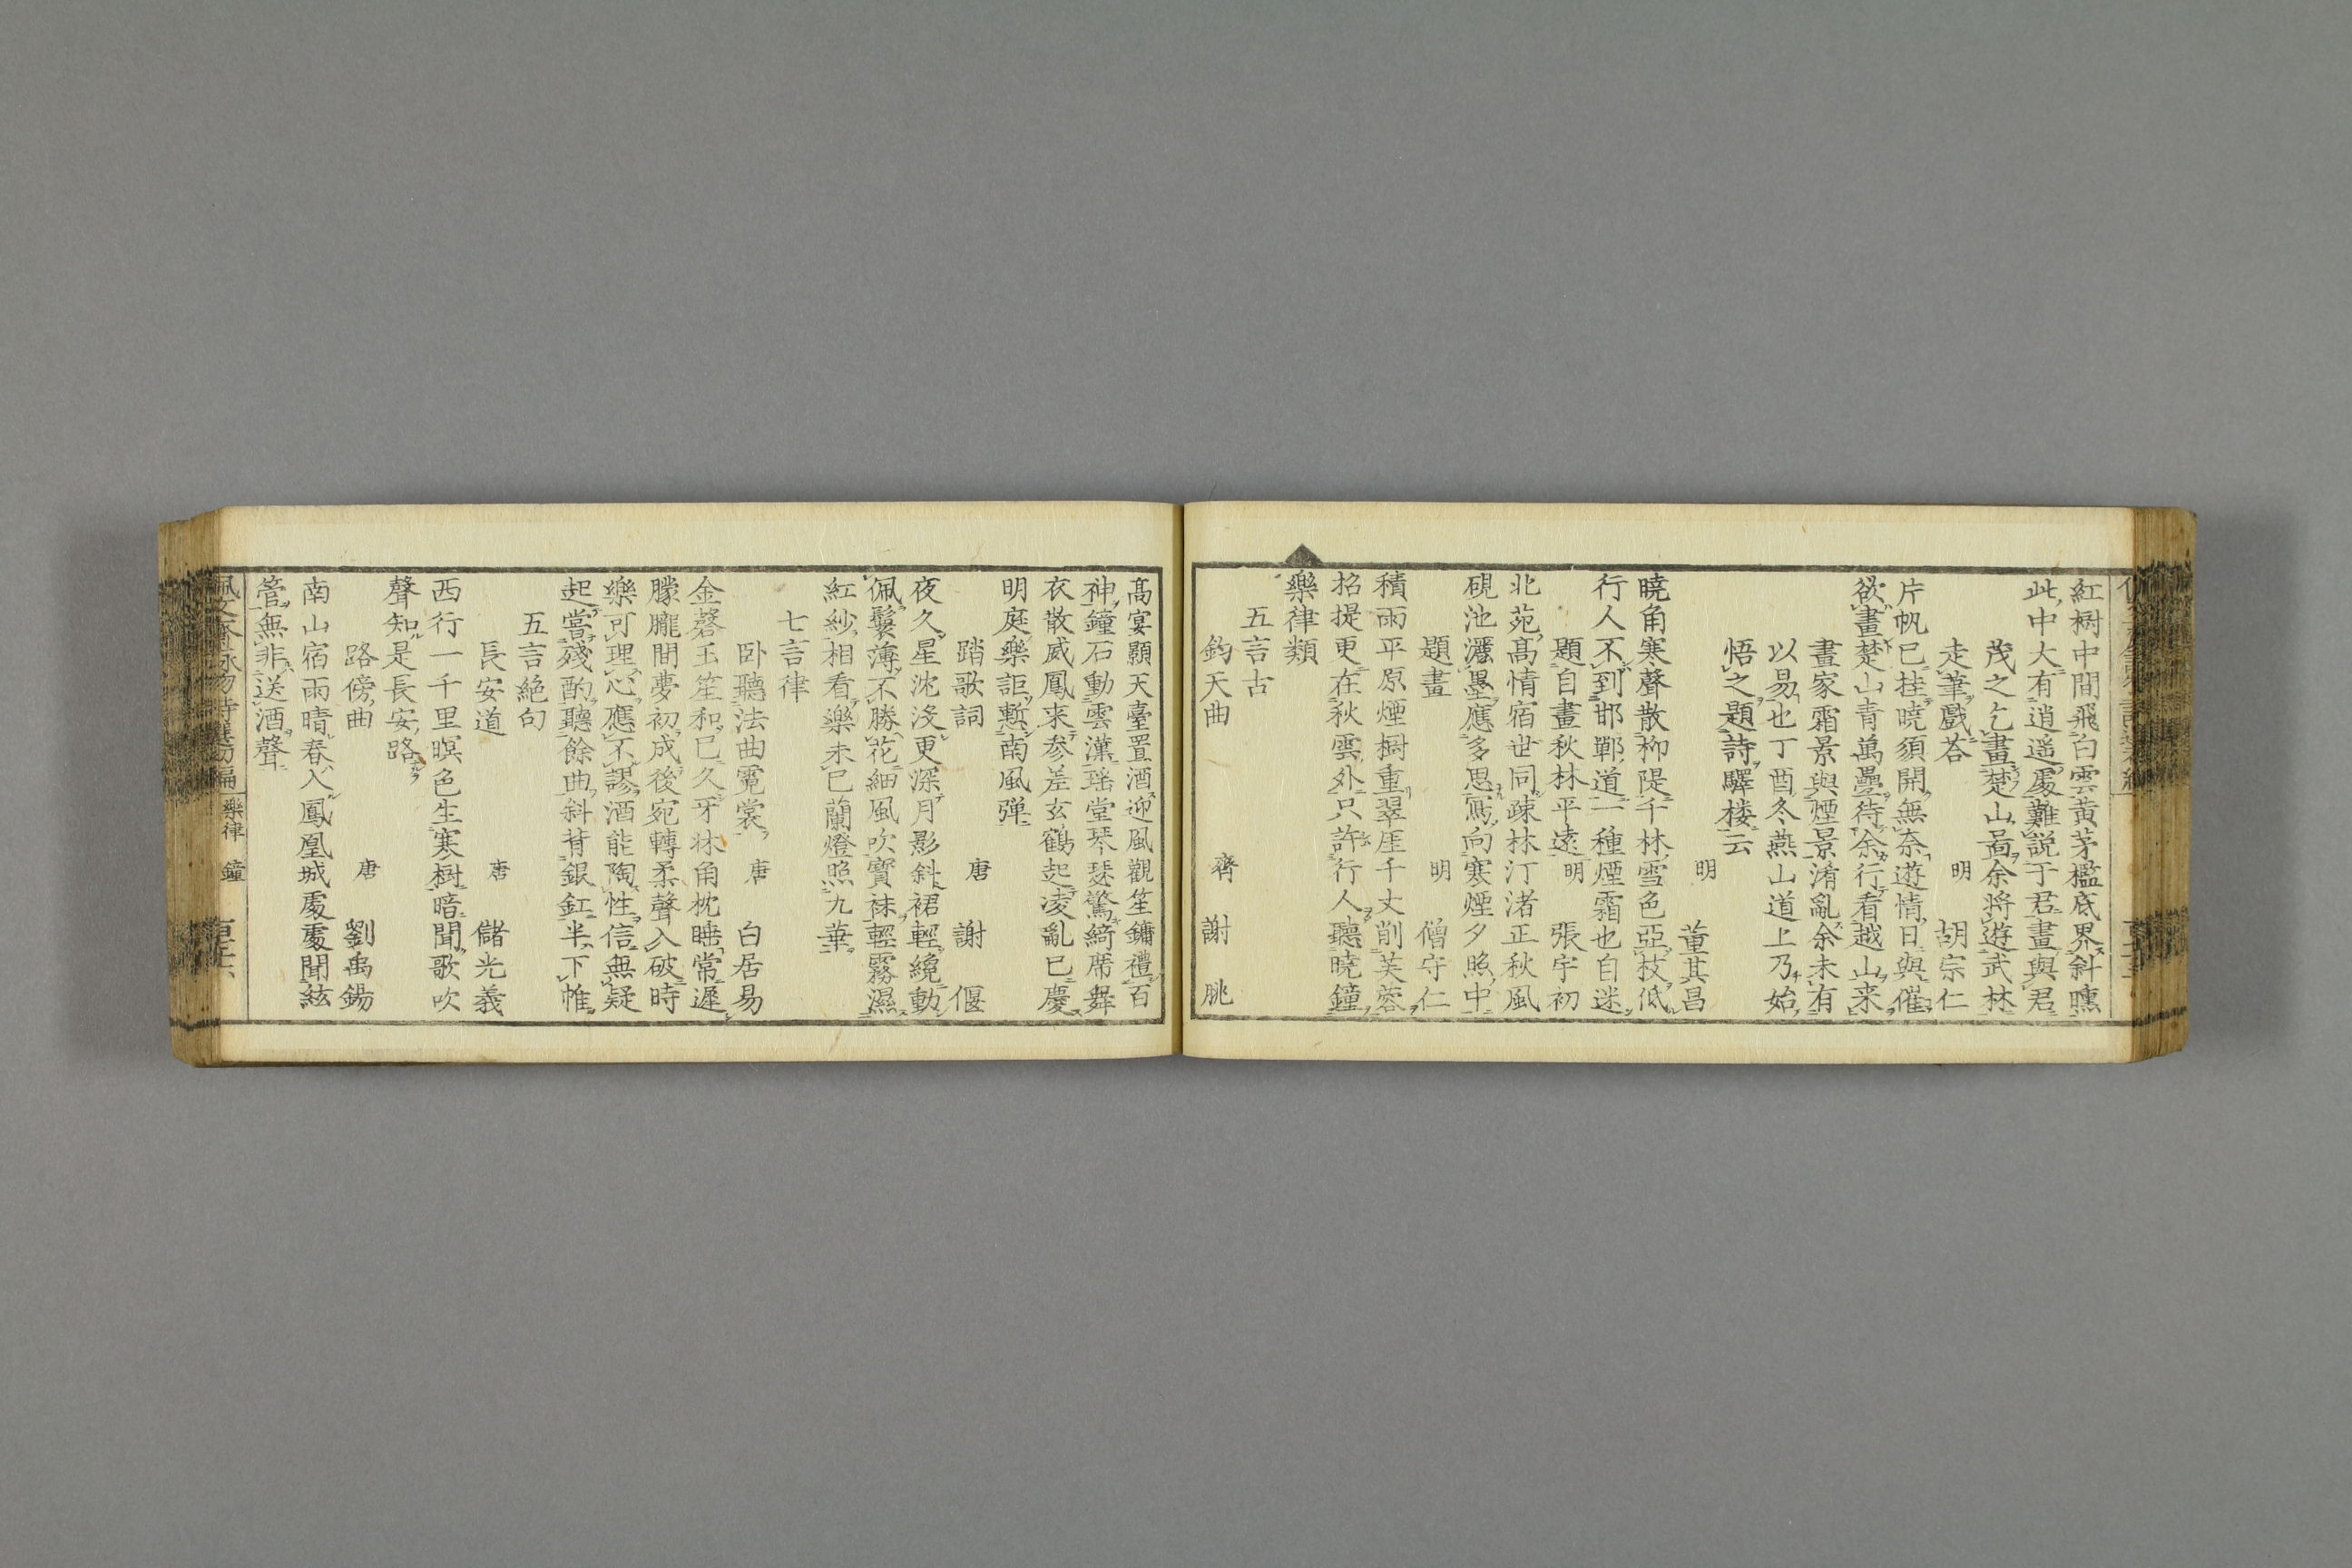 紅樹中間飛白雲黄茅檻底界斜曛
此中大有逍遥處難説于君畫與君
茂之乞畫楚山啚余将遊武林
走筆戲荅 明 胡宗仁
片帆已挂曉須開無奈遊情日與催
欲畫楚山青萬疊待余行看越山来
畫家霜景與煙景淆亂余未有
以易也丁酉冬燕山道上乃始
悟之題詩驛楼云
明 董其昌
曉角寒聲散柳隄千林雪色亞枝低
行人不到邯鄲道一種煙霜也自迷
題自畫秋林平遠 明 張宇初
北苑髙情宿世同疎林汀渚正秋風
硯池灑墨應多思寫向寒煙夕照中
題畫 明 僧守仁
積雨平原煙樹重翠厓千丈削芙蓉
招提更在秋雲外只許行人聽曉鐘
樂律類
五言古
鈞天曲 齊 謝朓
髙宴顥天臺置酒迎風觀笙鏞禮百
神鐘石動雲漢瑶堂琴瑟驚綺席舞
衣散威鳳来参差玄鶴起凌亂已慶
明庭樂詎慙南風弾
踏歌詞 唐 謝偃
夜久星沈没更深月影斜裙輕纔動
佩鬟薄不勝花細風吹寳袜輕霧濕
紅紗相看樂未已蘭燈照九華
七言律
卧聽法曲霓裳 唐 白居易
金磬玉笙和已久牙牀角枕睡常遲
朦朧閒夢初成後宛轉柔聲入破時
樂可理心應不謬酒能陶性信無疑
起嘗殘酌聽餘曲斜背銀釭半下帷
五言絶句
長安道 唐 儲光羲
西行一千里暝色生寒樹暗聞歌吹
聲知是長安路
路傍曲 唐 劉禹錫
南山宿雨晴春入鳳凰城處處聞絃
管無非送酒聲
佩文齋詠物詩選初編 樂律 鐘